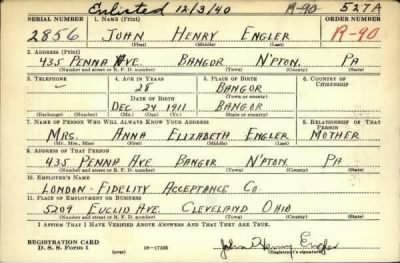 Enlisted 12/3/40 R-90 527A
SERIAL NUMBER 1. NAME (Print) ORDER NUMBER
2856 JOHN HENRY ENGLER R-90
(First) (Middle) (Last)
2. ADDRESS (Print)
435 PENNA AVE. BANGOR N'PTON. PA
(Number and street or R. F. D. number) (Town) (County) (State)
3. TELEPHONE 4. AGE IN YEARS 5. PLACE OF BIRTH 6. COUNTRY OF CITIZENSHIP
28 BANGOR
DATE OF BIRTH (Town or county)
DEC 24 1911 BANGOR
(Exchange) (Number) (Mo.) (Day) (Yr.) (State or country)
7. NAME OF PERSON WHO WILL ALWAYS KNOW YOUR ADDRESS 8. RELATIONSHIP OF THAT PERSON
MRS. ANNA ELIZABETH ENGLER MOTHER
(Mr., Mrs., Miss) (First) (Middle) (Last)
9. ADDRESS OF THAT PERSON
435 PENNA AVE. BANGOR N'PTON. PA
(Number and street or R. F. D. number) (Town) (County) (State)
10. EMPLOYER'S NAME
LONDON-FIDELITY ACCEPTANCE CO.
11. PLACE OF EMPLOYMENT OR BUSINESS
5209 EUCLID AVE. CLEVELAND OHIO
(Number and street or R. F. D. number) (Town) (County) (State)
I AFFIRM THAT I HAVE VERIFIED ABOVE ANSWERS AND THAT THEY ARE TRUE.
REGISTRATION CARD
D. S. S. Form 1 (over) 16-17105 John Henry Engler
(Registrant's signature)